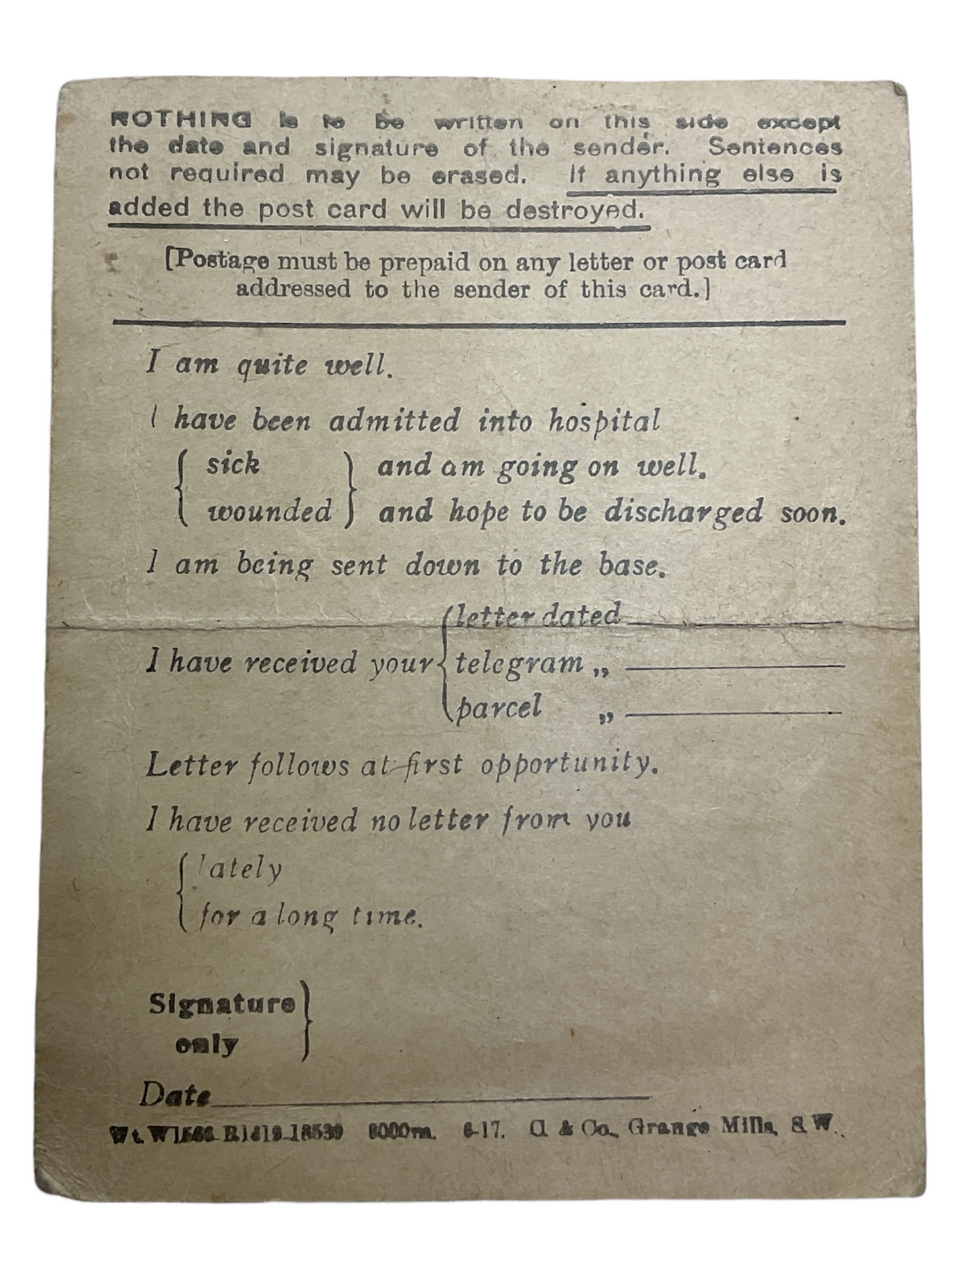 NOTHING is to be written on this side except
the date and signature of the sender. Sentences
not required may be erased. If anything else is
added the post card will be destroyed.
[Postage must be prepaid on any letter or post card
addressed to the sender of this card.]
I am quite well.
I have been admitted into hospital
{ sick } and am going on well.
{ wounded } and hope to be discharged soon.
I am being sent down to the base.
{ letter dated
I have received your { telegram „
{ parcel „
Letter follows at first opportunity.
I have received no letter from you
{ lately
{ for a long time.
Signature }
only }
Date
Wt. W1566 R1619-18539 8000m. 6-17. Cl & Co., Grange Mills, S.W.